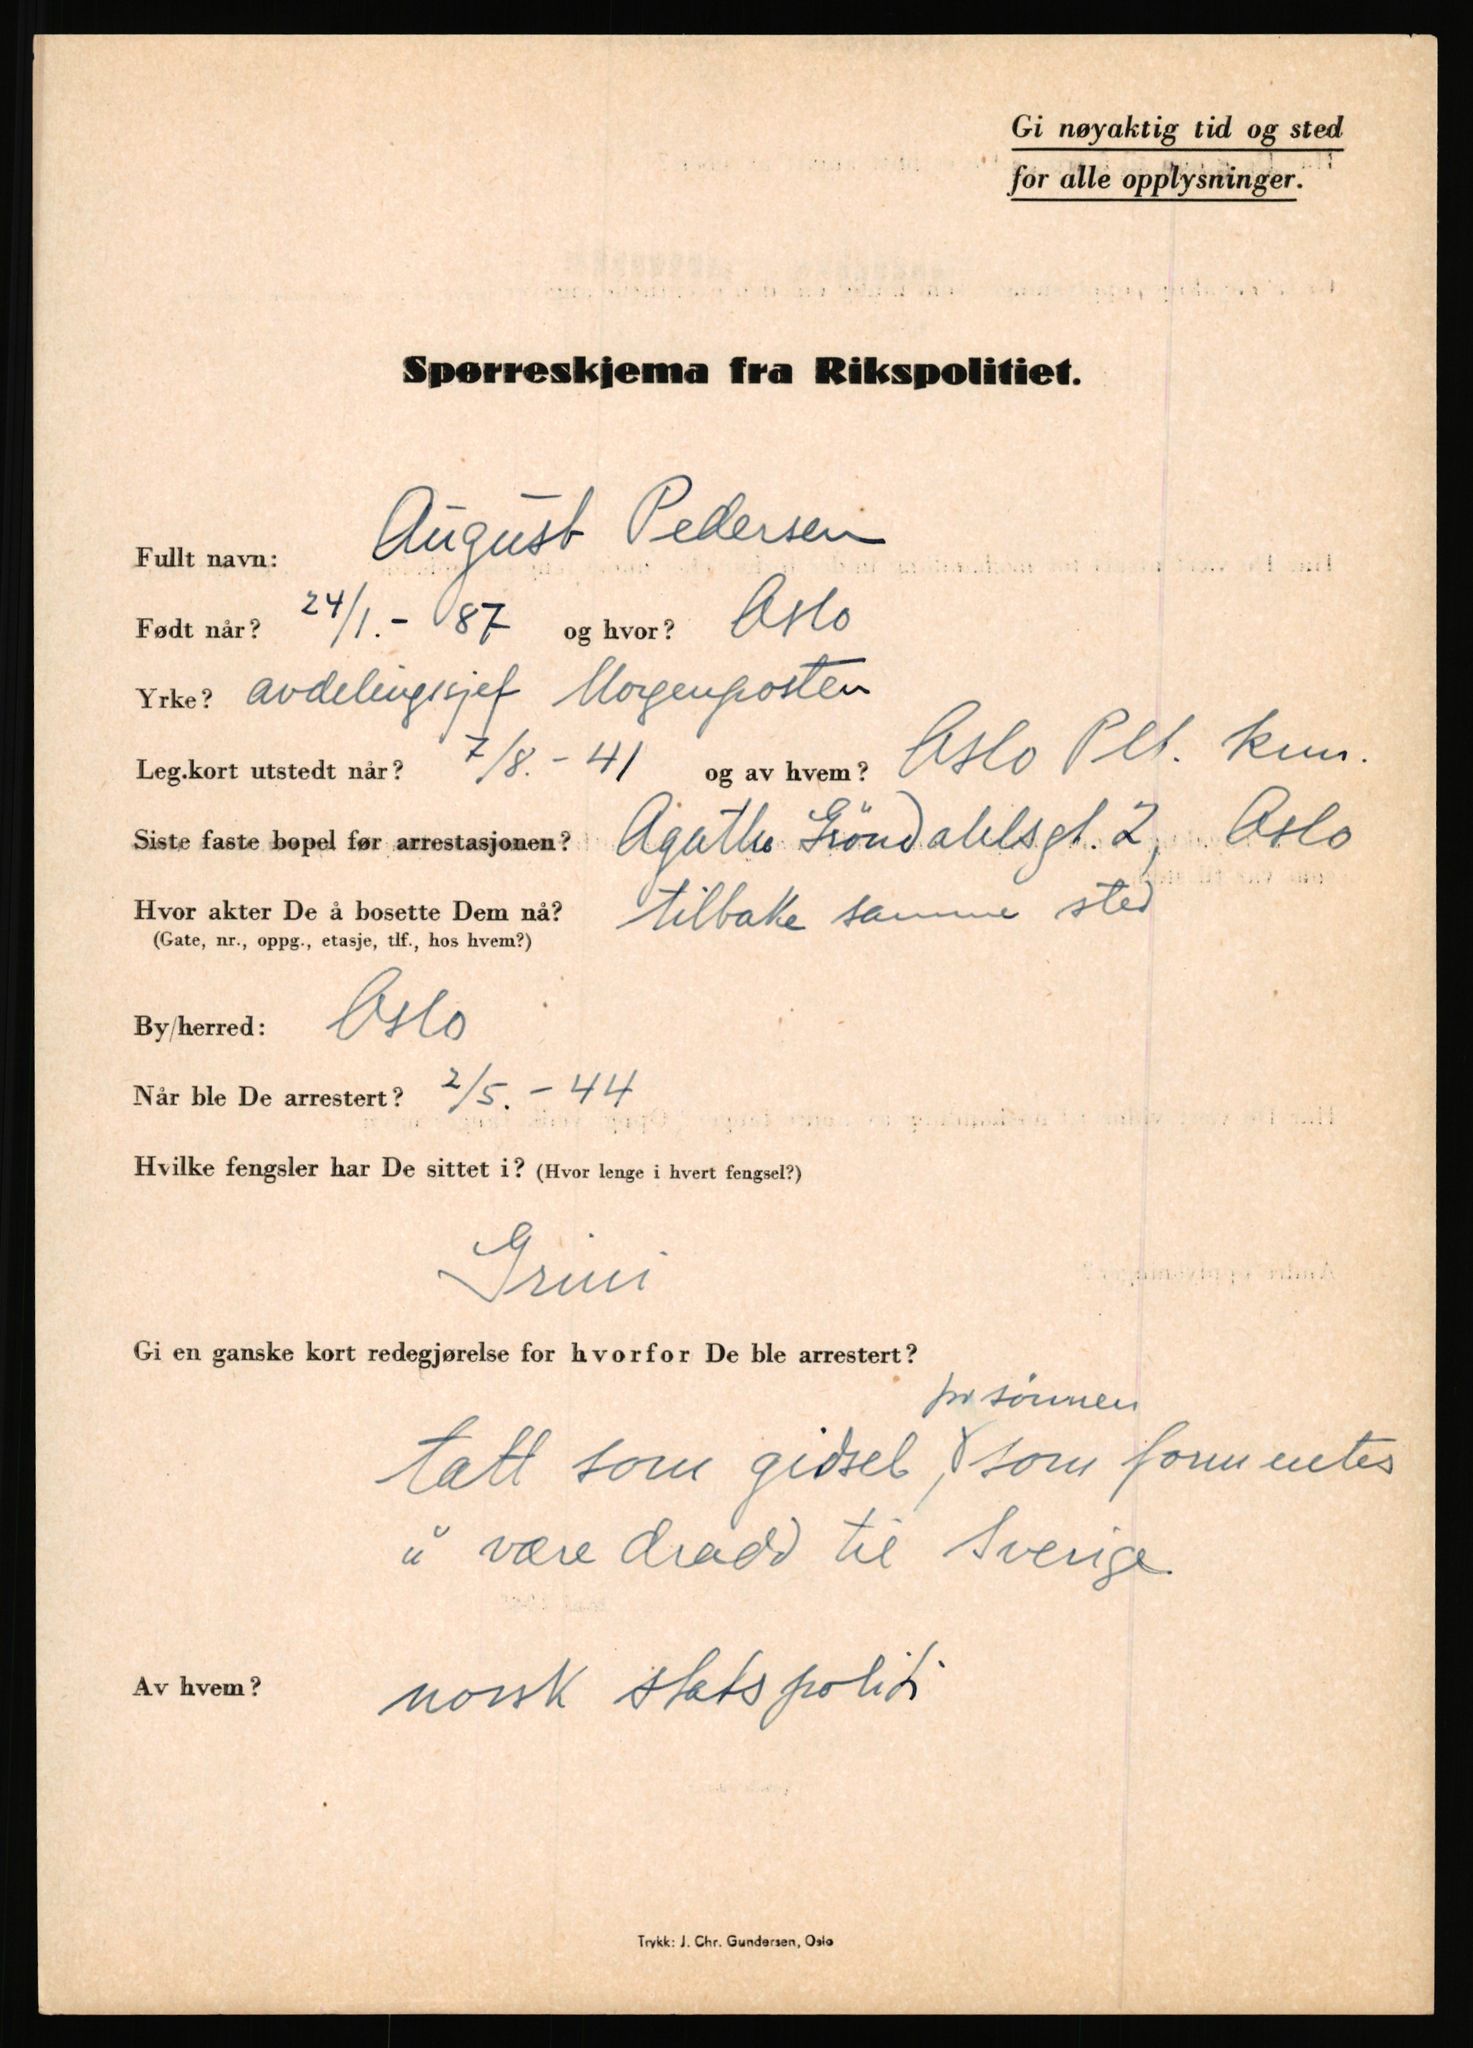 Gi nøyaktig tid og sted
for alle opplysninger.
Spørreskjema fra Rikspolitiet.
Fullt navn: August Pedersen
Født når? 24/1.- 87 og hvor? Oslo
Yrke? avdelingssjef Morgenposten
Leg.kort utstedt når? 7/8.- 41 og av hvem? Oslo Plt. kmr.
Siste faste bopel før arrestasjonen? Agathe Gröndahlsgt. 2, Oslo
Hvor akter De å bosette Dem nå? tilbake samme sted
(Gate, nr., oppg., etasje, tlf., hos hvem?)
By/herred: Oslo
Når ble De arrestert? 2/5.- 44
Hvilke fengsler har De sittet i? (Hvor lenge i hvert fengsel?)
Grini
Gi en ganske kort redegjørelse for hvorfor De ble arrestert?
for sönnen
tatt som gidsel, som formentes
å være dradd til Sverige
Av hvem? norsk statspoliti
Trykk: J. Chr. Gundersen, Oslo